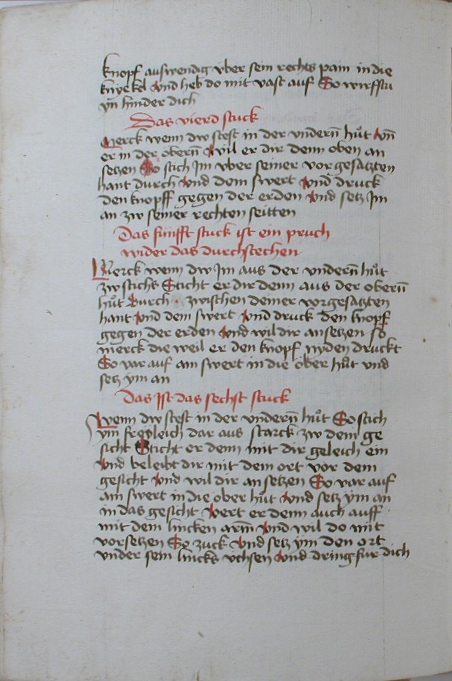 knopf auswendig vber sein rechts pain in die
knyekel vnd heb do mit vast auf So wirfstu
yn hinder dich
Das vierd stuck
Merck wenn dw stest in der vndern hüt vnd
er in der obern wil er dir denn oben an
setzen So stich Im vber seiner vorgesatzten
hant durch vnd dem swert vnd druck
den knopff gegen der erden vnd setz Im
an zw seiner rechten seitten
Das fünfft stuck ist ein pruch
wider das durchstechen
Merck wenn dw Im aus der vndern hüt
zw stichst Sticht er dir denn aus der obern
hüt durch zwischen deiner vorgesatzten
hant vnd dem swert vnd druckt den knopf
gegen der erden vnd wil dir ansetzen so
merck die weil er den knopf nyden druckt
So var auf am swert in die ober hüt vnd
setz ym an
Das Ist das sechst stuck
Wenn dw stest in der vndern hüt So stich
ym freyleich dar aus starck zw dem ge
sicht Sticht er denn mit dir geleich ein
vnd beleibt dir mit dem ort vor dem
gesicht vnd wil dir an setzen So var auf
am swert in die ober hüt vnd setz ym an
in das gesicht Wert er denn auch auff
mit dem lincken arm vnd wil do mit
vorsetzen So zuck vnd setz ym den ort
vnder sein lincks vchsen vnd dring für dich